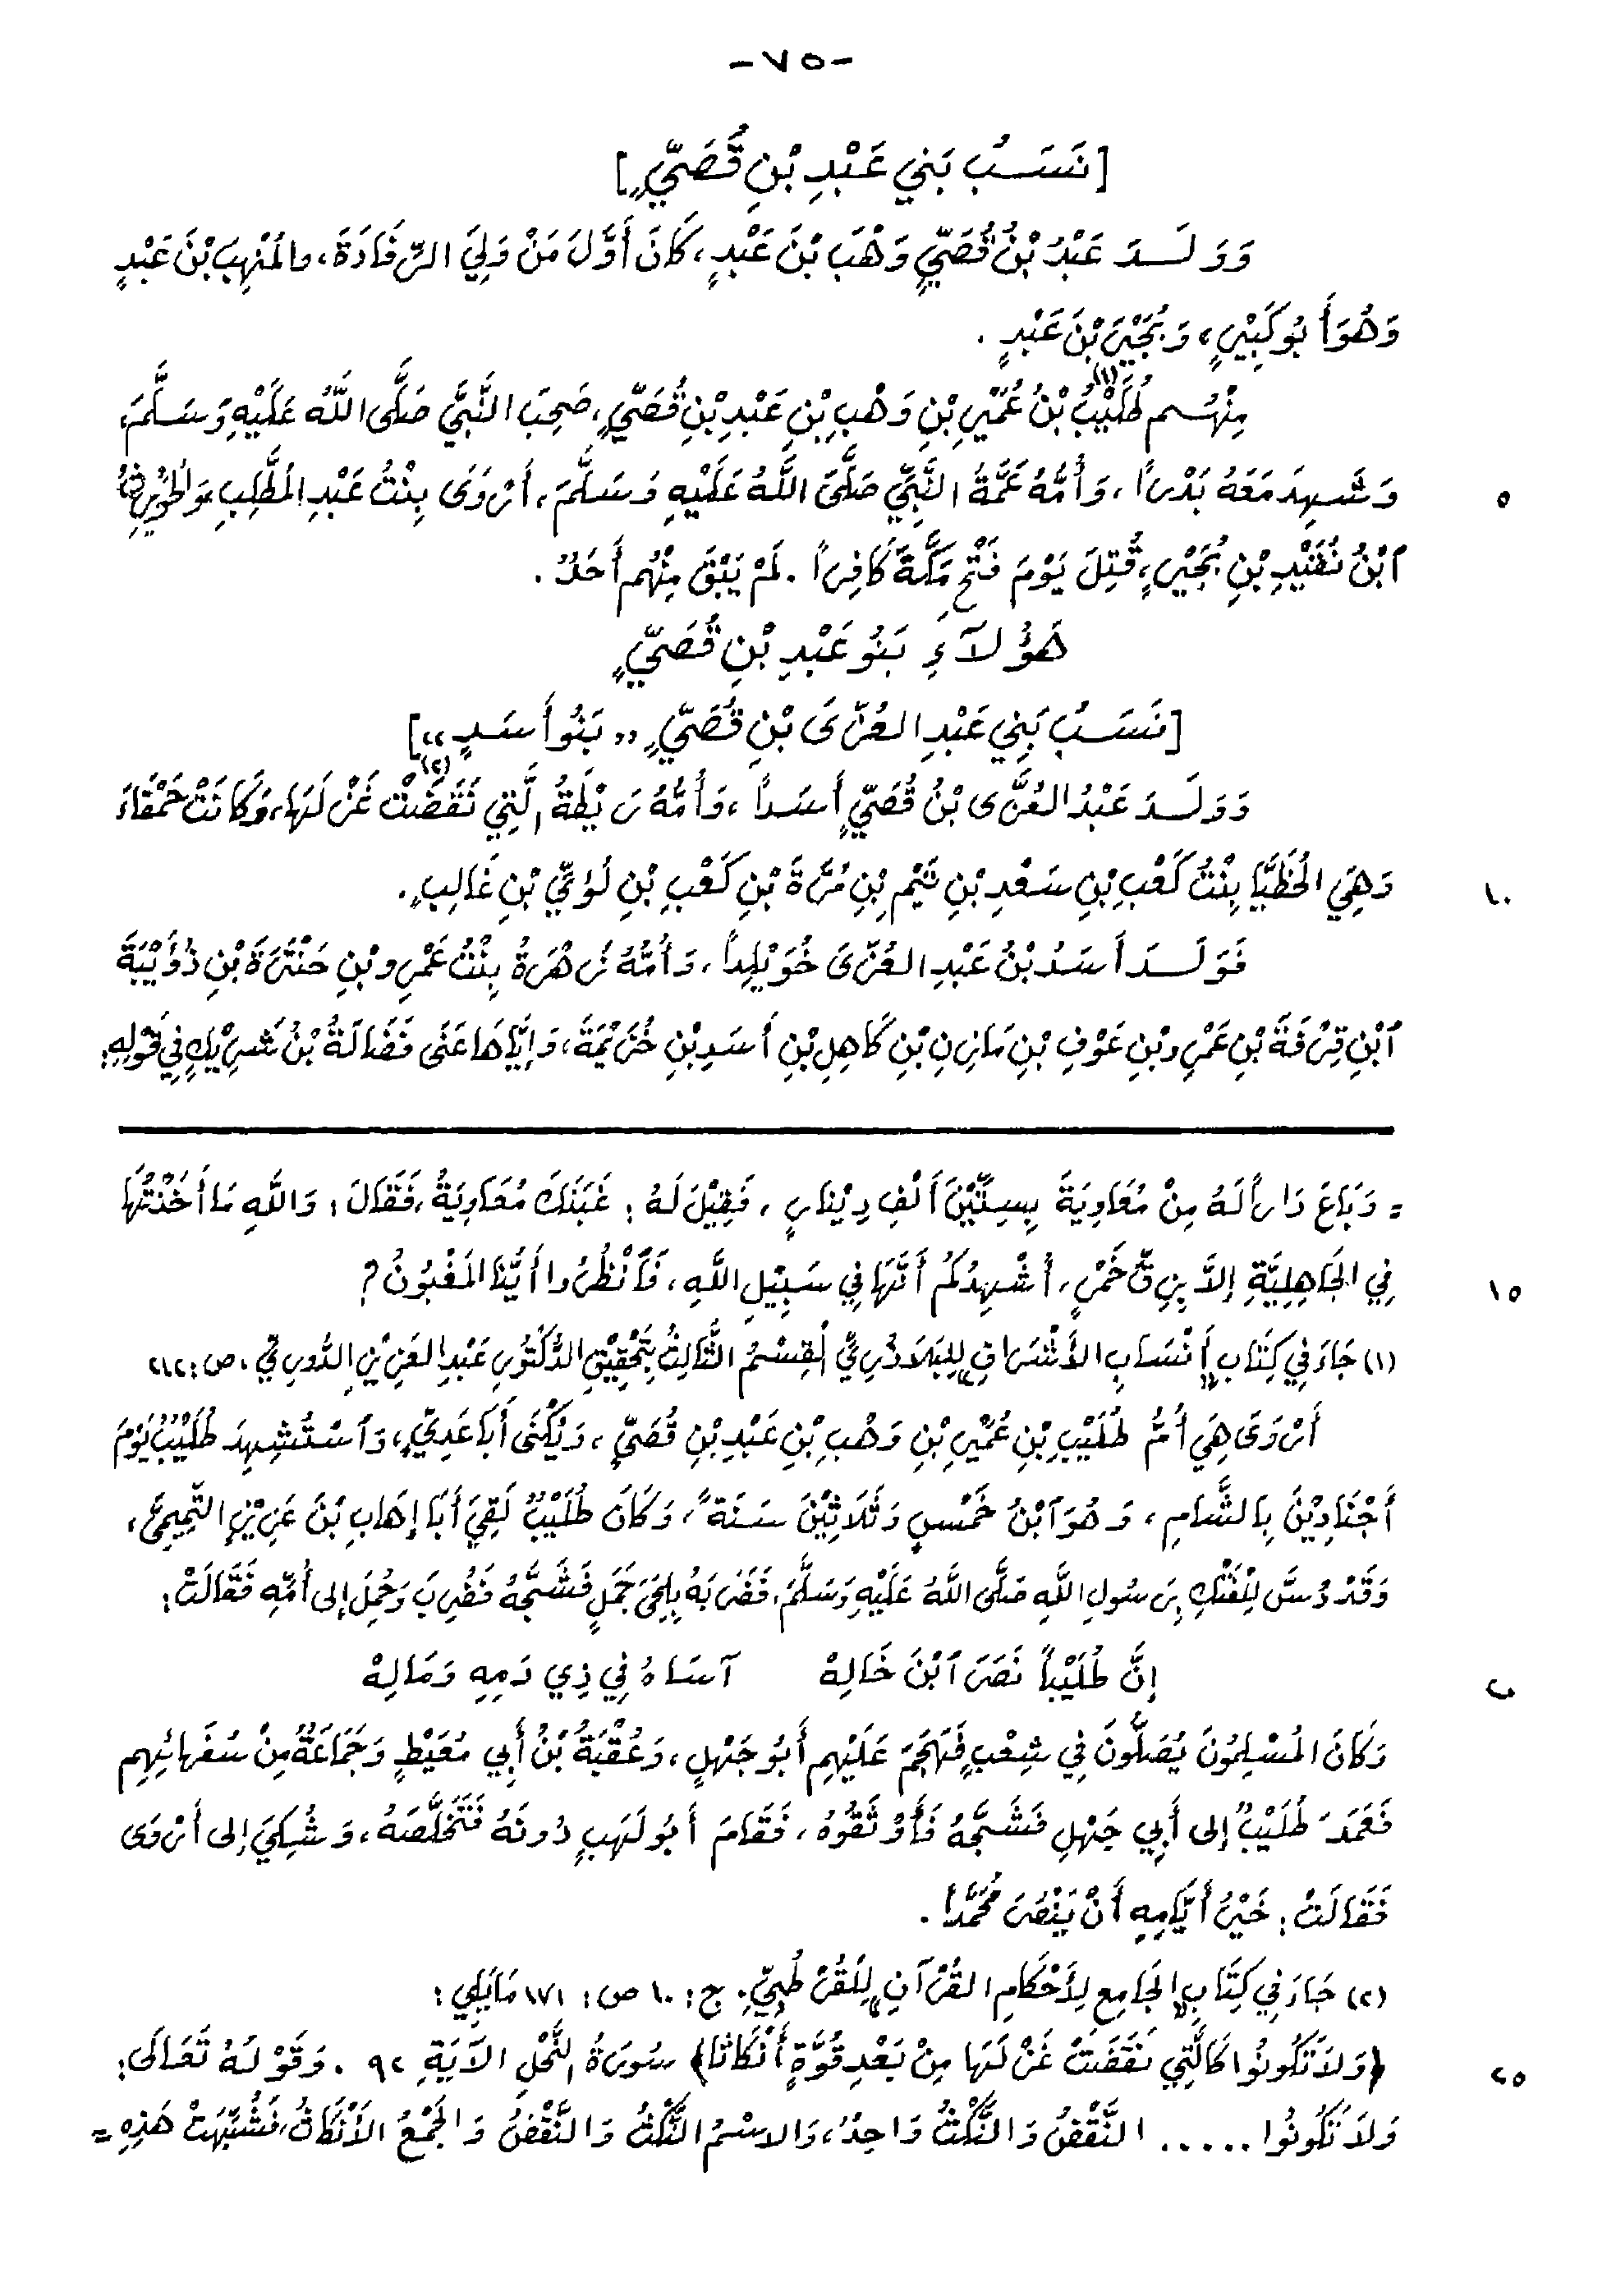 -٧٥-
[نَسَبُ بَنِي عَبْدِ بْنِ قُصَيٍّ]
وَوَلَدَ عَبْدُ بْنُ قُصَيٍّ وَهْبَ بْنَ عَبْدٍ، كَانَ أَوَّلَ مَنْ وَلِيَ الرِّفَادَةَ، والمُنْهِبَ بْنَ عَبْدٍ
وَهُوَ أَبُو كَبِيْرٍ، وَبُجَيْرَ بْنَ عَبْدٍ .
مِنْهُم طُلَيْبُ (١) بْنُ عُمَيْرِ بْنِ وَهْبِ بْنِ عَبْدِ بْنِ قُصَيٍّ، صَحِبَ النَّبِيَّ صَلَّى اللَّهُ عَلَيْهِ وَسَلَّمَ،
وَشَهِدَ مَعَهُ بَدْراً، وَأُمُّهُ عَمَّةُ النَّبِيِّ صَلَّى اللَّهُ عَلَيْهِ وَسَلَّمَ، أَرْوَى بِنْتُ عَبْدِ المُطَّلِبِ، وَالحُوَيْرِثُ ٥
ٱبْنُ نُقَيْدِ بْنِ بُجَيْرٍ، قُتِلَ يَوْمَ فَتْحِ مَكَّةَ كَافِراً . لَمْ يَبْقَ مِنْهُم أَحَدٌ .
هَؤُلَآءِ بَنُو عَبْدِ بْنِ قُصَيٍّ
[نَسَبُ بَنِي عَبْدِ العُزَّى بْنِ قُصَيٍّ «بَنُو أَسَدٍ»]
وَوَلَدَ عَبْدُ العُزَّى بْنُ قُصَيٍّ أَسَداً، وَأُمُّهُ رَيْطَةُ الَّتِي نَقَضَتْ (٢) غَزْلَهَا، وَكَانَتْ حَمْقَاءَ
وَهِيَ الحُظَيَّا بِنْتُ كَعْبِ بْنِ سَعْدِ بْنِ تَيْمِ بْنِ مُرَّةَ بْنِ كَعْبِ بْنِ لُؤَيِّ بْنِ غَالِبٍ. ١٠
فَوَلَدَ أَسَدُ بْنُ عَبْدِ العُزَّى خُوَيْلِداً، وَأُمُّهُ زُهْرَةُ بِنْتُ عَمْرِو بْنِ حَنْتَرَةَ بْنِ ذُؤَيْبَةَ
ٱبْنِ قِرْفَةَ بْنِ عَمْرِو بْنِ عَوْفِ بْنِ مَازِنِ بْنِ كَاهِلِ بْنِ أَسَدِ بْنِ خُزَيْمَةَ، وَإِيَّاهَا عَنَى فَضَالَةُ بْنُ شَرِيْكٍ فِي قَوْلِهِ:
= وَبَاعَ دَاراً لَهُ مِنْ مُعَاوِيَةَ بِسِتِّيْنَ أَلْفِ دِيْنَارٍ، فَقِيْلَ لَهُ: غَبَنَكَ مُعَاوِيَةُ، فَقَالَ: وَاللَّهِ مَا أَخَذْتُهَا
فِي الجَاهِلِيَّةِ إلَّا بِزِقِّ خَمْرٍ، أُشْهِدُكُمْ أَنَّهَا فِي سَبِيْلِ اللَّهِ، فَٱنْظُرُوا أَيُّنَا المَغْبُونُ؟ ١٥
(١) جَاءَ فِي كِتَابِ «أَنْسَابِ الأَشْرَافِ» لِلبَلَاذُرِيِّ القِسْمُ الثَّالِثُ بِتَحْقِيْقِ الدُّكْتُورِ عَبْدِ العَزِيْزِ الدُّورِيِّ، ص: ٢١٢
أَرْوَى هِيَ أُمُّ طُلَيْبِ بْنِ عُمَيْرِ بْنِ وَهْبِ بْنِ عَبْدِ بْنِ قُصَيٍّ، وَيُكْنَى أَبَا عَدِيٍّ، وَٱسْتُشْهِدَ طُلَيْبٌ يَوْمَ
أَجْنَادِيْنَ بِالشَّامِ، وَهُوَ ٱبْنُ خَمْسٍ وَثَلَاثِيْنَ سَنَةً، وَكَانَ طُلَيْبٌ لَقِيَ أَبَا إِهَابِ بْنَ عَزِيْزٍ التَّمِيمِيَّ،
وَقَدْ دُسَّ لِلْفَتْكِ بِرَسُولِ اللَّهِ صَلَّى اللَّهُ عَلَيْهِ وَسَلَّمَ، فَضَرَبَهُ بِلِحَى جَمَلٍ فَشَجَّهُ فَضُرِبَ وَحُمِلَ إلى أُمِّهِ فَقَالَتْ:
إِنَّ طُلَيْباً نَصَرَ ٱبْنَ خَالِهْ آسَاهُ فِي ذِي دَمِهِ وَمَالِهْ ٢٠
وَكَانَ المُسْلِمُونَ يُصَلُّونَ فِي شِعْبٍ فَهَجَمَ عَلَيْهِم أَبُو جَهْلٍ، وَعُقْبَةُ بْنُ أَبِي مُعَيْطٍ وَجَمَاعَةٌ مِنْ سُفَهَائِهِم
فَعَمَدَ طُلَيْبٌ إلى أَبِي جَهْلٍ فَشَجَّهُ فَأَوْثَقُوهُ، فَقَامَ أَبُو لَهَبٍ دُونَهُ فَتَخَلَّصَهُ، وَشُكِيَ إلى أَرْوَى
فَقَالَتْ: خَيْرُ أَيَّامِهِ أَنْ يَنْصُرَ مُحَمَّداً.
(٢) جَاءَ فِي كِتَابِ «الجَامِعِ لِأَحْكَامِ القُرْآنِ» لِلْقُرْطُبِيِّ. ج: ١٠ ص: ١٧١ مَايَلِي:
﴿وَلَا تَكُونُوا كَالَّتِي نَقَضَتْ غَزْلَهَا مِنْ بَعْدِ قُوَّةٍ أَنْكَاثاً﴾ سُورَةُ النَّحْلِ الآيَةِ ٩٢ . وَقَوْلُهُ تَعَالَى: ٢٥
وَلَا تَكُونُوا ..... النَّقْضُ وَالنَّكْثُ وَاحِدٌ، وَالاسْمُ النِّكْثُ وَالنَّقْضُ وَالجَمْعُ الأَنْكَاثُ، فَشُبِّهَتْ هَذِهِ =